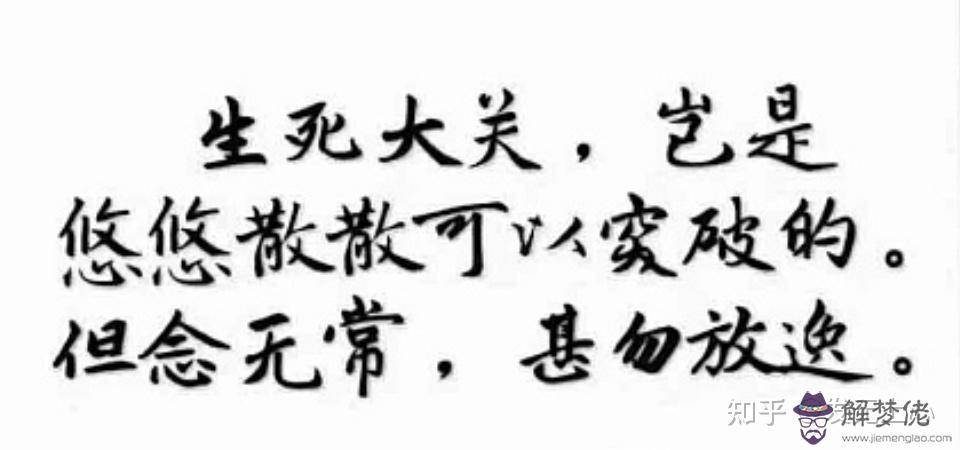 生死大关，岂是
悠悠散散可以突破的。
但念无常，甚勿放逸。
知乎
解梦佬
www.jiemenglao.com